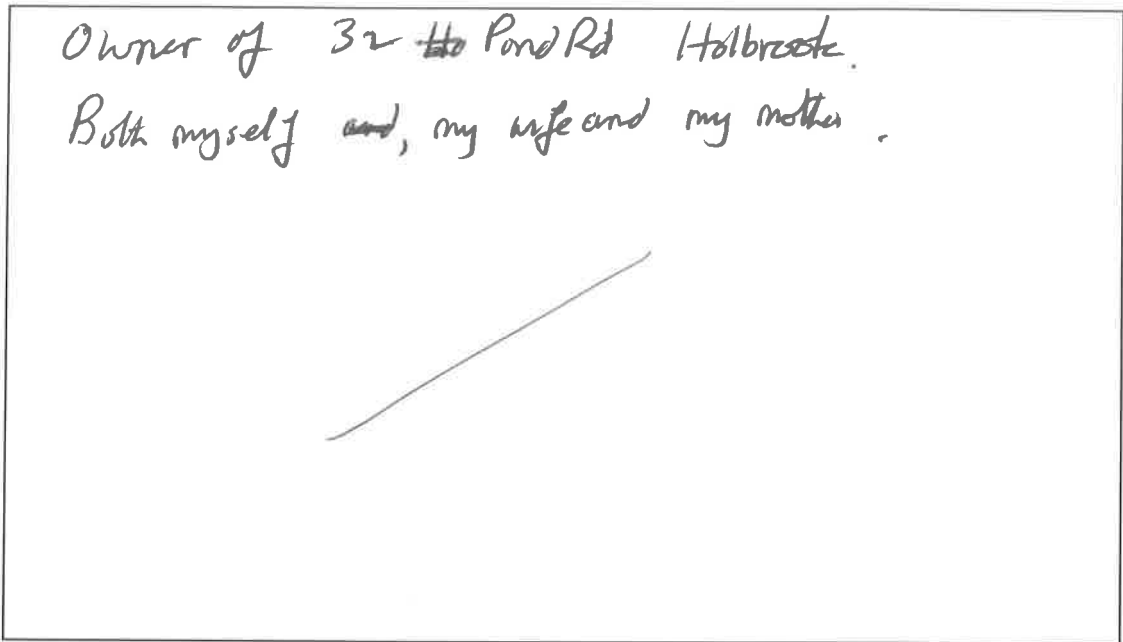 Owner of 32 Pond Rd Holbrook.
Both myself and, my wife and my mother.